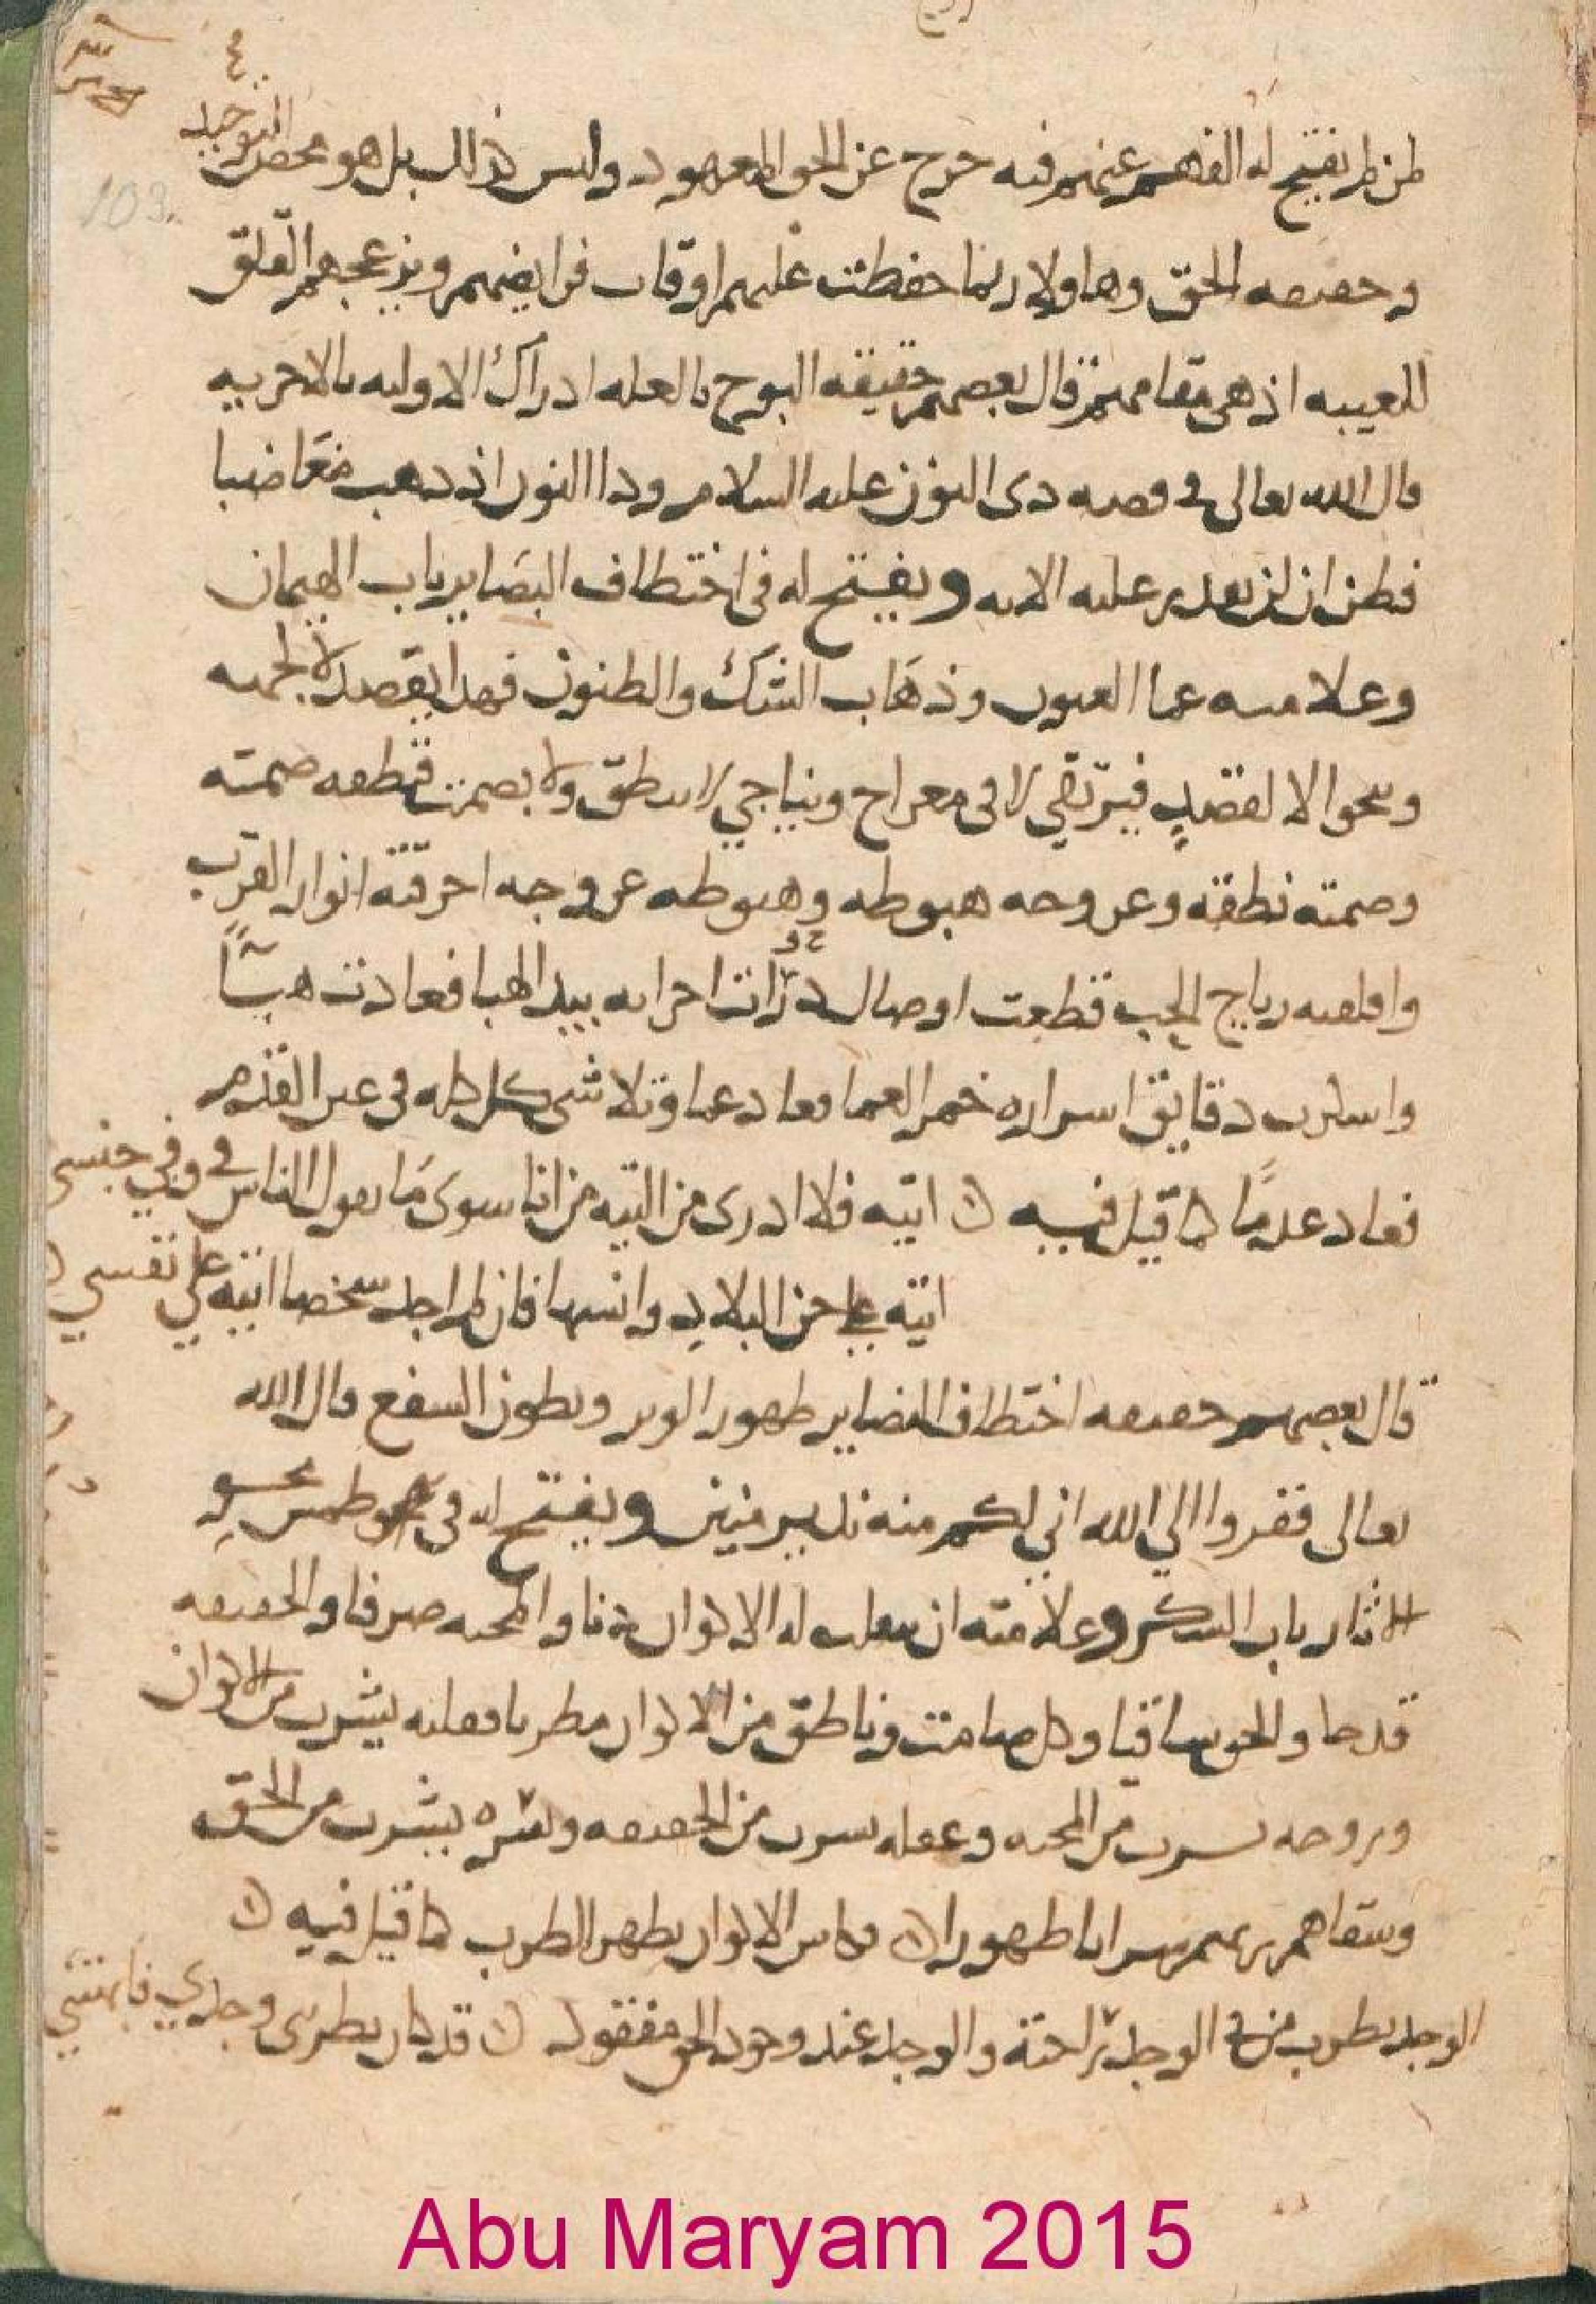 ٤
103
ظن لم يفتح له الفهم عنهم فيه خرج عن الحق المعهود وليس كذلك بل هو محض التوحيد
وحقيقه الحق وهاولا ربما حفظت عليهم اوقات فرايضهم ويزعجهم القلق
للغيبه اذ هي مقامهم قال بعضهم حقيقه البوح بالعله ادراك الاوليه بالاخريه
قال الله تعالى في قصه ذي النون عليه السلام وذا النون اذ ذهب مغاضبا
فظن ان لن نقدر عليه الايه ويفتح له في اختطاف البصاير باب الهيمان
وعلامته عما العيون وذهاب الشك والظنون فهذا يقصد لا لجهه
وينحو الا لقصد فيرتقي لا في معراج ويناجي لا ينطق ولا يصمت فنطقه صمته
وصمته نطقه وعروجه هبوطه وهبوطه عروجه احرقته انوار القرب
واقلعته رياح الحب قطعت اوصال ذرات اجزايه بيد الهبا فعادت هباً
واسكرت دقايق اسراره خمر العما فعاد عما وتلاشى كل كله في عين القدم
فعاد عدمًا كما قيل فيه ۞ اتيه فلا ادرى من التيه من انا سوى ما يقول الناس في وفي جنسي
اتيه على جن البلاد وانسها فان لم اجد شخصا اتيه على نفسي ۞
قال بعضهم حقيقه اختطاف البصاير ظهور الوتر وبطون الشفع قال الله
تعالى ففروا الى الله اني لكم منه نذير مبين ويفتح له في طمس محو
الاثار باب السكر وعلامته ان تنقلب له الاكوان دنا والمحبه صرفا والحقيقه
قدحا والحق ساقيا وكل صامت وناطق من الاكوان مطربا فقلبه يشرب من الاكوان
وروحه يشرب من المحبه وعقله يشرب من الحقيقه وسره يشرب من الحق
وسقاهم ربهم شرابا طهورا ۞ وكاس الاكوان يظهر الطرب كما قيل فيه ۞
الوجد يطرب من في الوجد راحته والوجد عند وجود الحق مفقود ۞ قد كان يطربني وجدي
Abu Maryam 2015